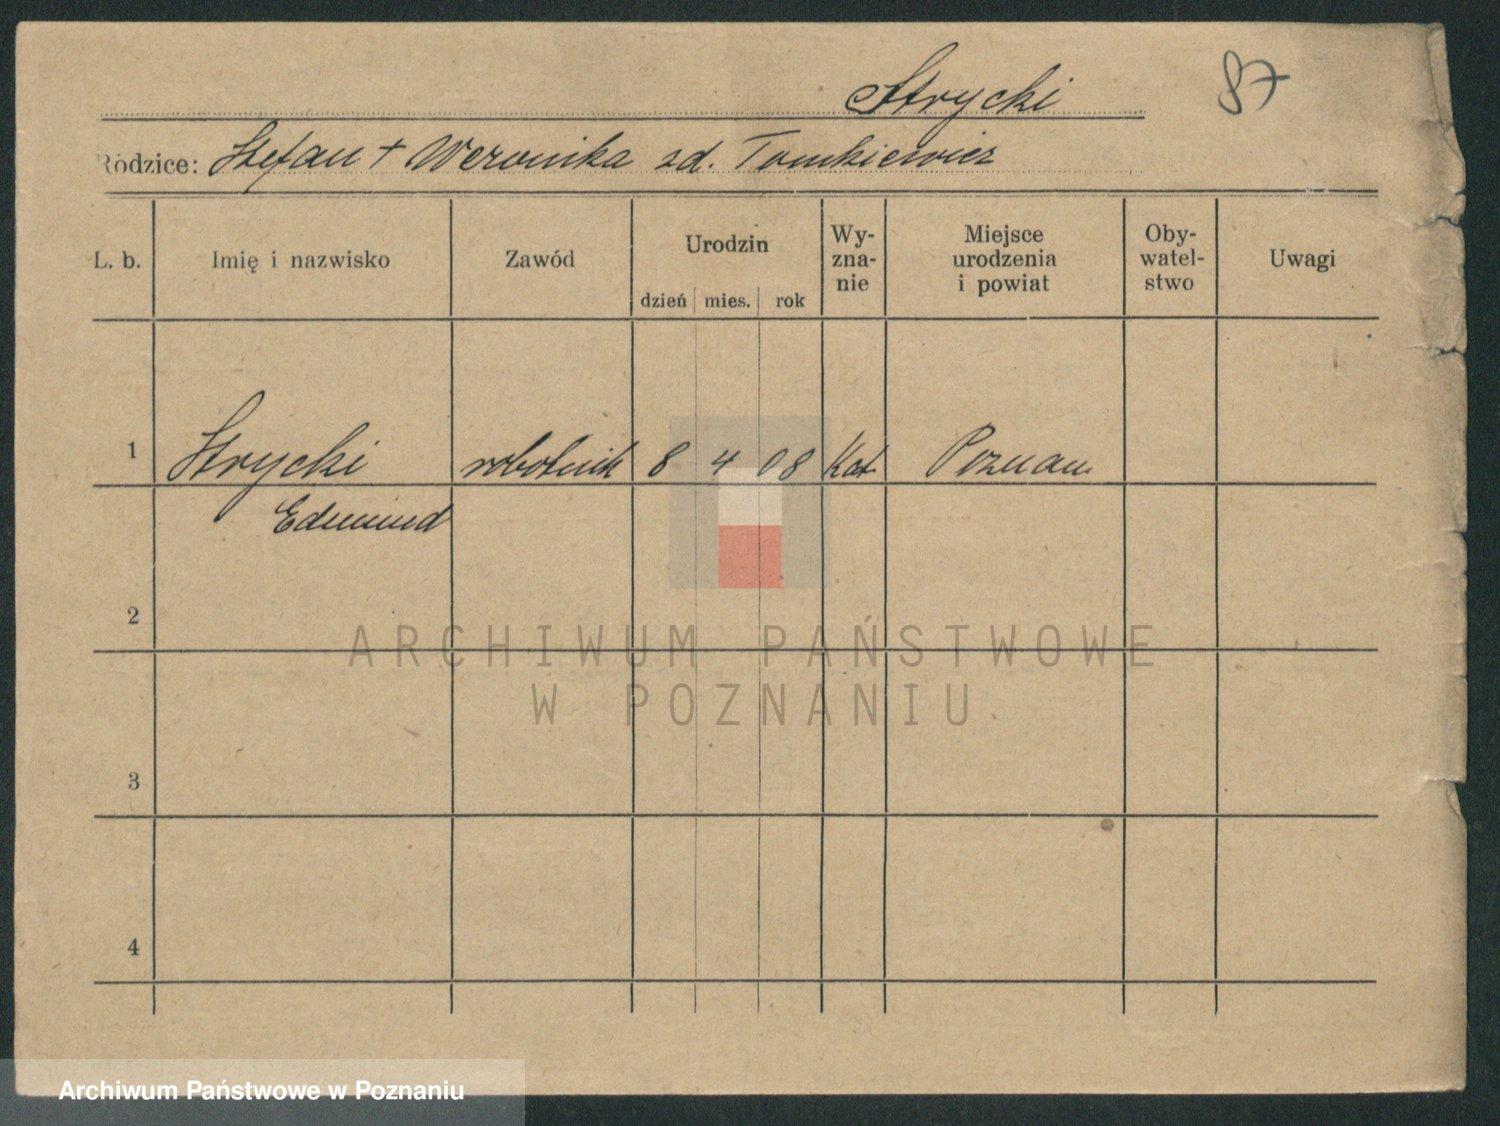 Strycki
87
Rodzice: Stefan + Weronika zd. Tomkiewicz
L. b.
Imię i nazwisko
Zawód
Urodzin
dzień mies. rok
Wy-
zna-
nie
Miejsce
urodzenia
i powiat
Oby-
watel-
stwo
Uwagi
1 Strycki robotnik 8 4 08 Kat Poznań
Edmund
2
3
4
ARCHIWUM PAŃSTWOWE
W POZNANIU
Archiwum Państwowe w Poznaniu